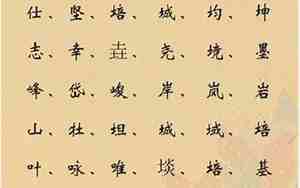 仕、坚、培、城、均、坤
志、幸、垚、尧、境、墨
峰、岱、峻、岸、岚、岩
山、壮、坦、城、域、培
叶、咏、唯、埮、培、基